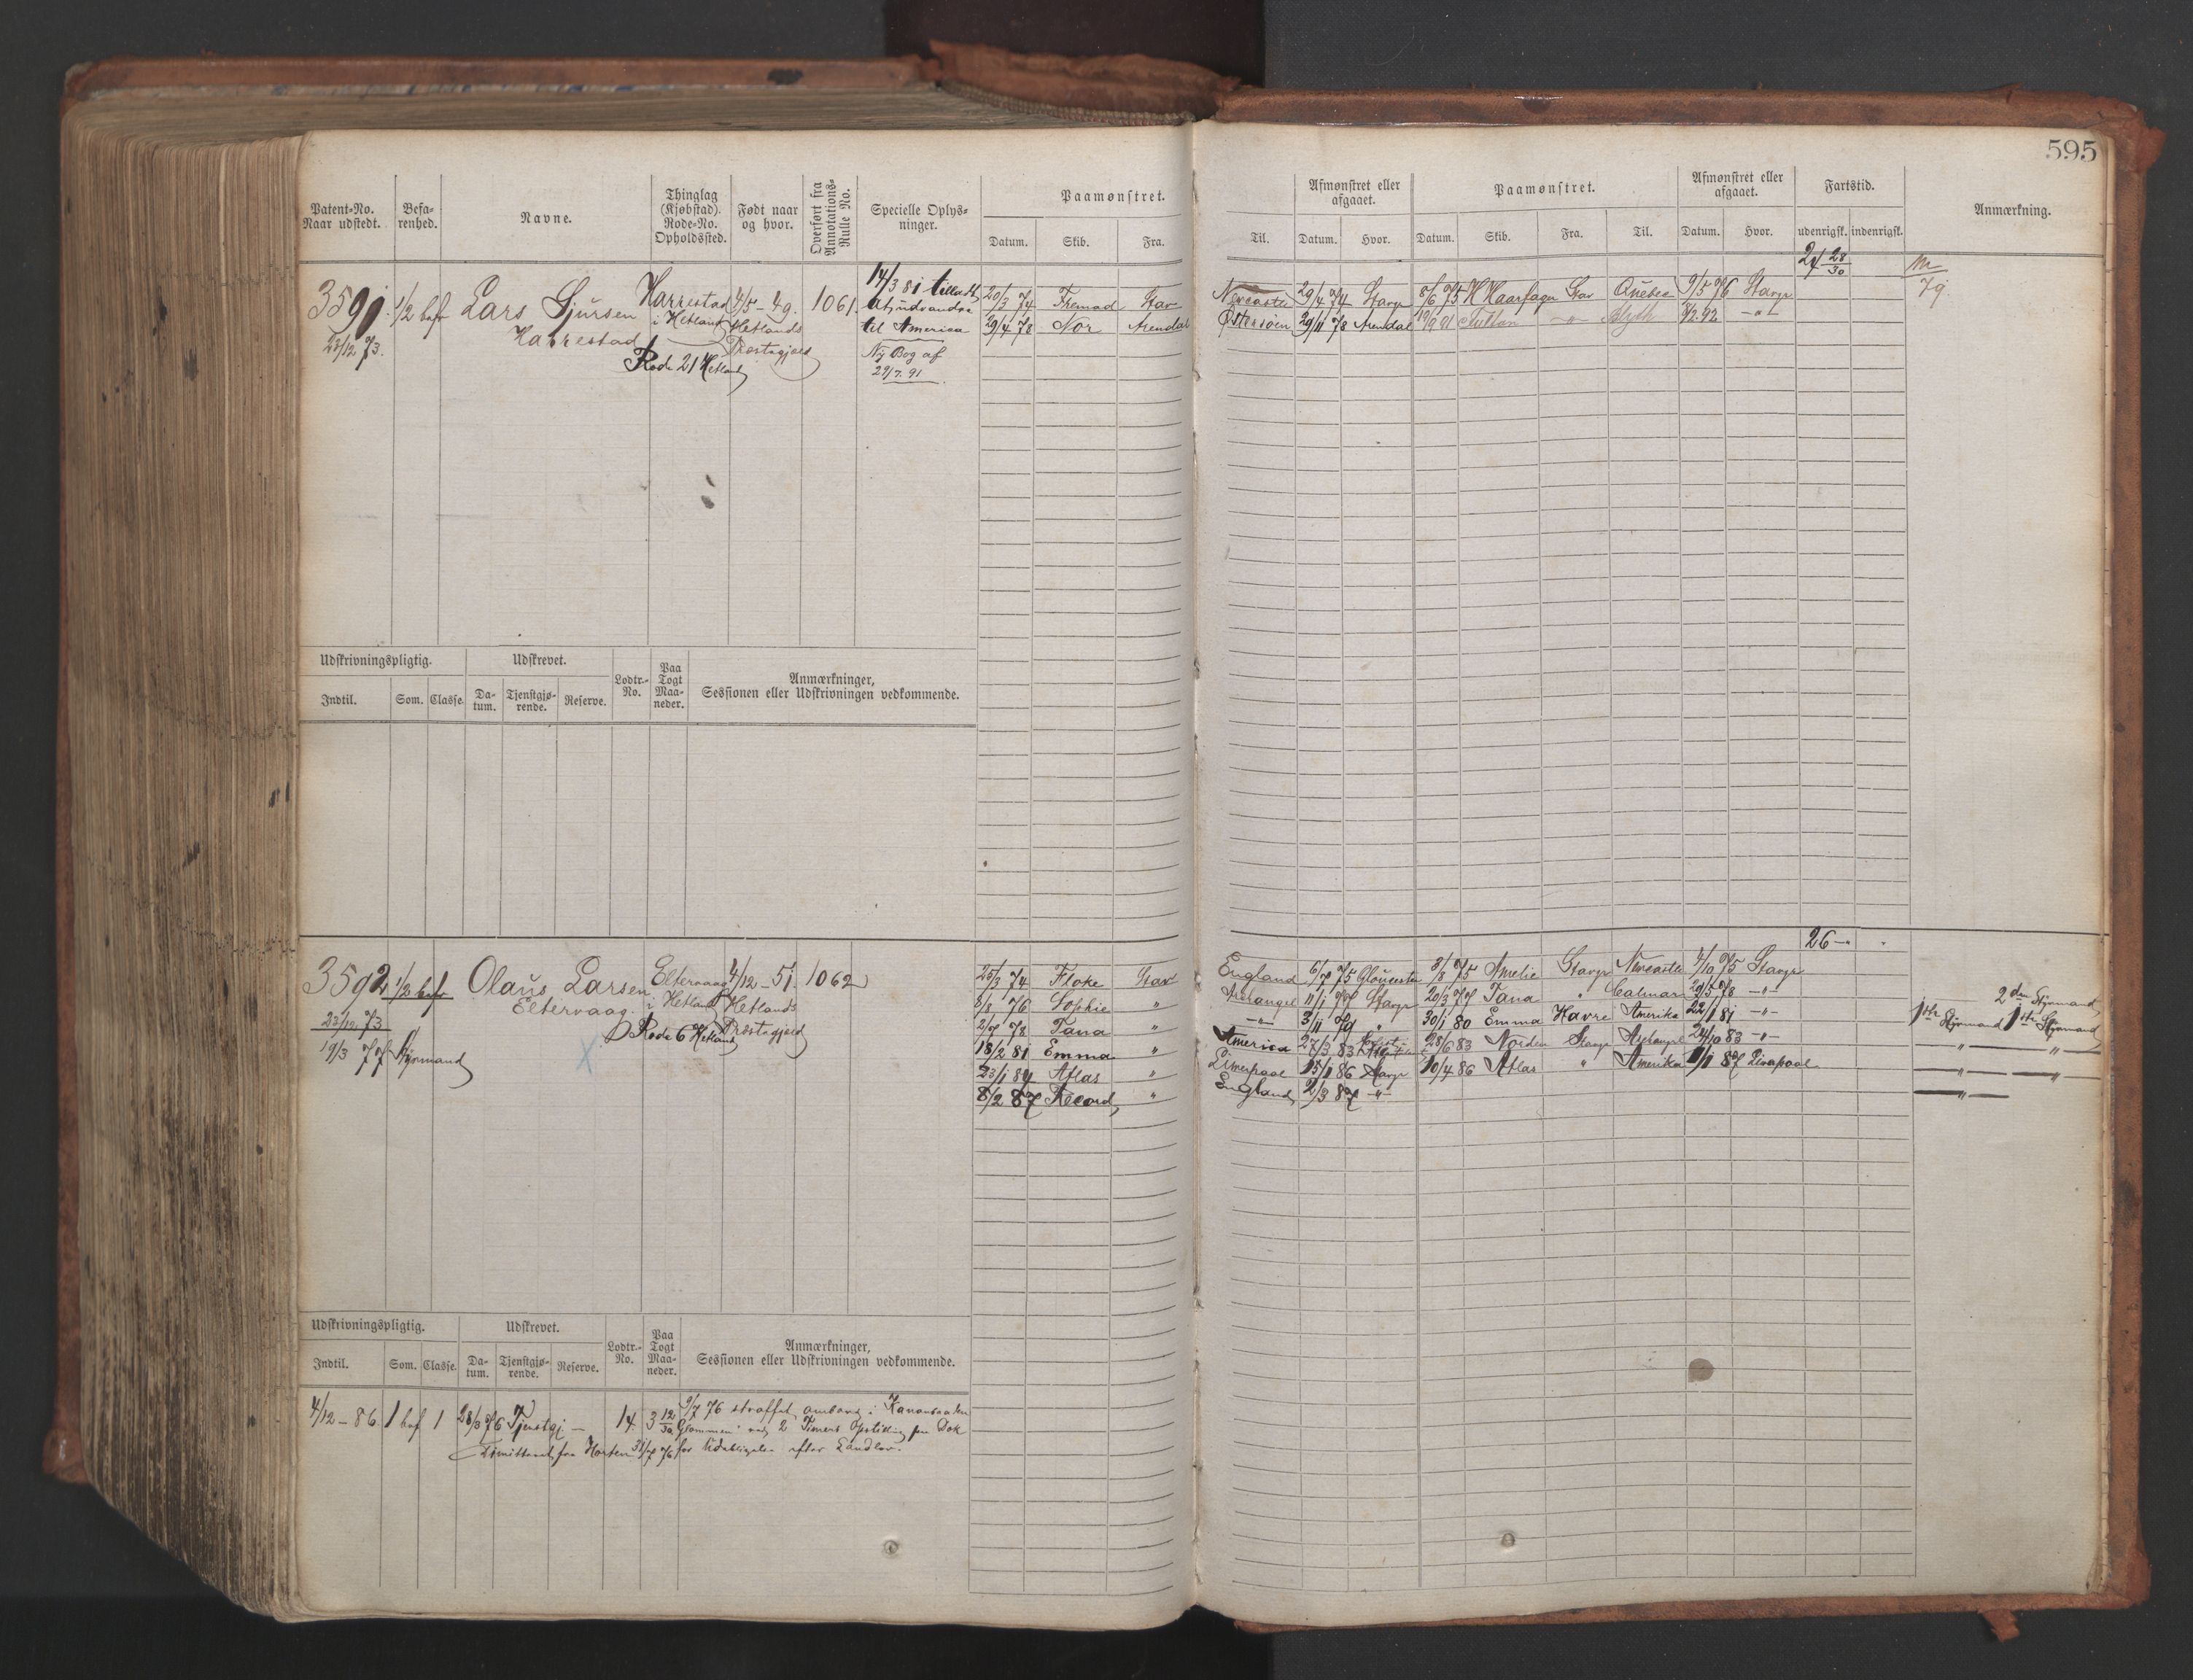 595
Patent-No. Naar udstedt. Befarenhed. Navne. Thinglag (Kjøbstad). Rode-No. Opholdssted. Født naar og hvor. Overført fra Annotations-Rulle No. Specielle Oplysninger. Paamønstret. Datum. Skib. Fra.
Til. Afmønstret eller afgaaet. Datum. Hvor. Paamønstret. Datum. Skib. Fra. Til. Afmønstret eller afgaaet. Datum. Hvor. Fartstid. udenrigsk. indenrigsk. Anmærkning.
3591. 1/2 bef Lars Sjursen Harrestad 4/5 - 49. 1061.
23/12 73. Harrestad i Hetland Hetlands Præstegjæld
Rode 21 Hetland
14/3 81 tilladt
at udvandre
til America
Ny Bog af
29/7. 91
20/3 74 Fremad Stav Newcastle 29/4 74 Stavgr 8/6 75 H Haarfager Stav Quebec 9/5 76 Stavgr
29/4 78 Nor Arendal Østersøen 29/11 78 Arendal
27 28/30
79
Udskrivningspligtig. Udskrevet. Lodtr-No. Paa Togt Maaneder. Anmærkninger, Sessionen eller Udskrivningen vedkommende.
Indtil. Som. Classe. Datum. Tjenstgjørende. Reserve.
3592 1/2 bef Olaus Larsen Eltervaag 4/12 - 51. 1062
23/12 73 Eltervaag. i Hetland Hetlands Præstegjæld
19/3 77 Styrmand Rode 6 Hetland
26
25/3 74 Floke Stav England 6/7 75 Gloucester 8/8 75 Amelie Stavgr Newcastle 4/10 75 Stavgr
8/8 76 Sophie " Archangel 11/1 77 Stavgr 20/3 77 Tana " Calmar 29/5 78 -"-
2/7 78 Tana " -"- 3/11 79 " 30/1 80 Emma Havre Amerika 22/1 81 -"-
18/2 81 Emma " America 27/3 83 28/6 83 Norden Stavgr Archangel 24/10 83 -"-
23/1 84 Atlas " Liverpool 15/1 86 Stavgr 10/4 86 Atlas " Amerika 1/1 87 Liverpool
8/2 87 Record " England 2/3 87 -"-
2den Styrmand
1ste Styrmand 1ste Styrmand
-"- -"-
-"- -"-
-"-
Udskrivningspligtig. Udskrevet. Lodtr-No. Paa Togt Maaneder. Anmærkninger, Sessionen eller Udskrivningen vedkommende.
Indtil. Som. Classe. Datum. Tjenstgjørende. Reserve.
4/12 - 86 1 bef 1 28/3 76 Tjenstgj - 14. 3 12/30 9/7 76 straffet ombord i Kanonbaaden
Glommen ved 2 Timers Opstilling paa Dæk
Dimitteret fra Horten 31/7 76 for Udeblivelse efter Landlov.